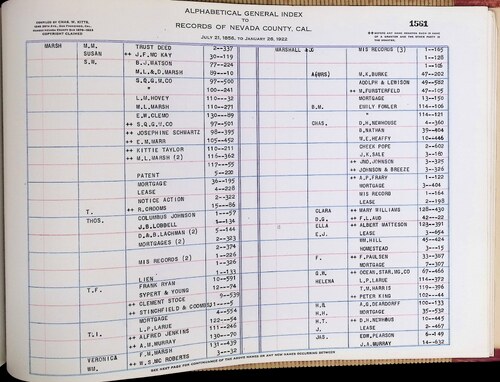 ALPHABETICAL GENERAL INDEX
TO
RECORDS OF NEVADA COUNTY, CAL.
JULY 21, 1856, TO JANUARY 28, 1922
COPYRIGHT CLAIMED
1561
MARSH M.M. TRUST DEED 2--337
SUSAN ++ J.F. MC KAY 30--119
S.W. B.J. WATSON 77--224
M.L. & D. MARSH 89--10
S.Q.G.M. CO 97--500
" 100--241
L.M. HOVEY 110--32
M.L. MARSH 110--271
E.W. CLEMO 130--89
++ S.Q.G.M. CO 97--501
++ JOSEPHINE SCHWARTZ 98--395
++ E.M. MARR 105--452
++ KITTIE TAYLOR 110--211
++ M.L. MARSH (2) 116--362
117--55
PATENT 5--220
MORTGAGE 36--195
LEASE 4--228
NOTICE ACTION 2--322
T. ++ R. GROOMS 15--86
THOS. COLUMBUS JOHNSON 1--57
J.B. LOBDELL 5--134
D.&B. LACHMAN (2) 5--144
MORTGAGES (2) 2--323
2--374
MIS RECORDS (2) 1--226
1--326
LIEN 1--133
T.F. FRANK RYAN 10--591
SYPERT & YOUNG 12--74
++ CLEMENT STOCE 9--539
++ STINGHFIELD &
MORTGAGE 4--554
L.P. LARUE 122--54
T.L. ++ ALFRED JENKINS 111--246
++ A.M. MURRAY 130--70
VERONICA F.M. MARSH 131--439
WM. ++ W.S. MC ROBERTS 3--32
MARSHALL MIS RECORDS (3) 1--165
1--128
1--105
A(MRS) M.K. BURKE 47--202
ADOLPH & LEWISON 49--582
++ M. FURSTERFELD 47--105
MORTGAGE 13--150
B.M. EMILY FOWLER 114--106
" 114--121
CHAS. D.H. NEWHOUSE 4--360
B. NATHAN 39--404
W.E. HEAFFY 10--446
CHEEK POPE 2--602
J.K. SALE 1--80
++ JNO. JOHNSON 3--325
++ JOHNSON & BREEZE 3--326
++ A.P. FRARY 1--122
MORTGAGE 3--404
MIS RECORD 1--164
LEASE 2--198
CLARA ++ MARY WILLIAMS 128--430
D.G. ++ F.L. AUD 42--22
ELLA ++ ALBERT MATTESON 123--391
E.J. LEASE 3--654
WM. HILL 45--424
HOMESTEAD 3--15
F. ++ F. PAULSEN 33--387
MORTGAGE 7--307
G.W. ++ OCEAN STAR MG. CO 67--466
HELENA L.P. LARUE 114--372
T.M. HARRIS 119--396
++ PETER KING 102--44
H.B. A.G. DEARDORFF 100--133
H.H. MORTGAGE 35--532
H.T. ++ D.H. NEWHOUS 10--445
J. LEASE 2--467
JAS. EDW. PEARSON 8--49
J.A. MURRAY 14--632
SEE NEXT PAGE FOR CONTINUANCE OF THE ABOVE NAMES OR ANY NEW NAMES OCCURRING BETWEEN